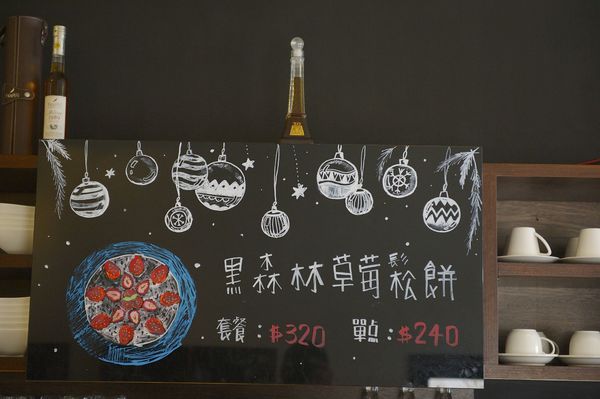 黑森林草莓鬆餅
套餐：$320 單點：$240